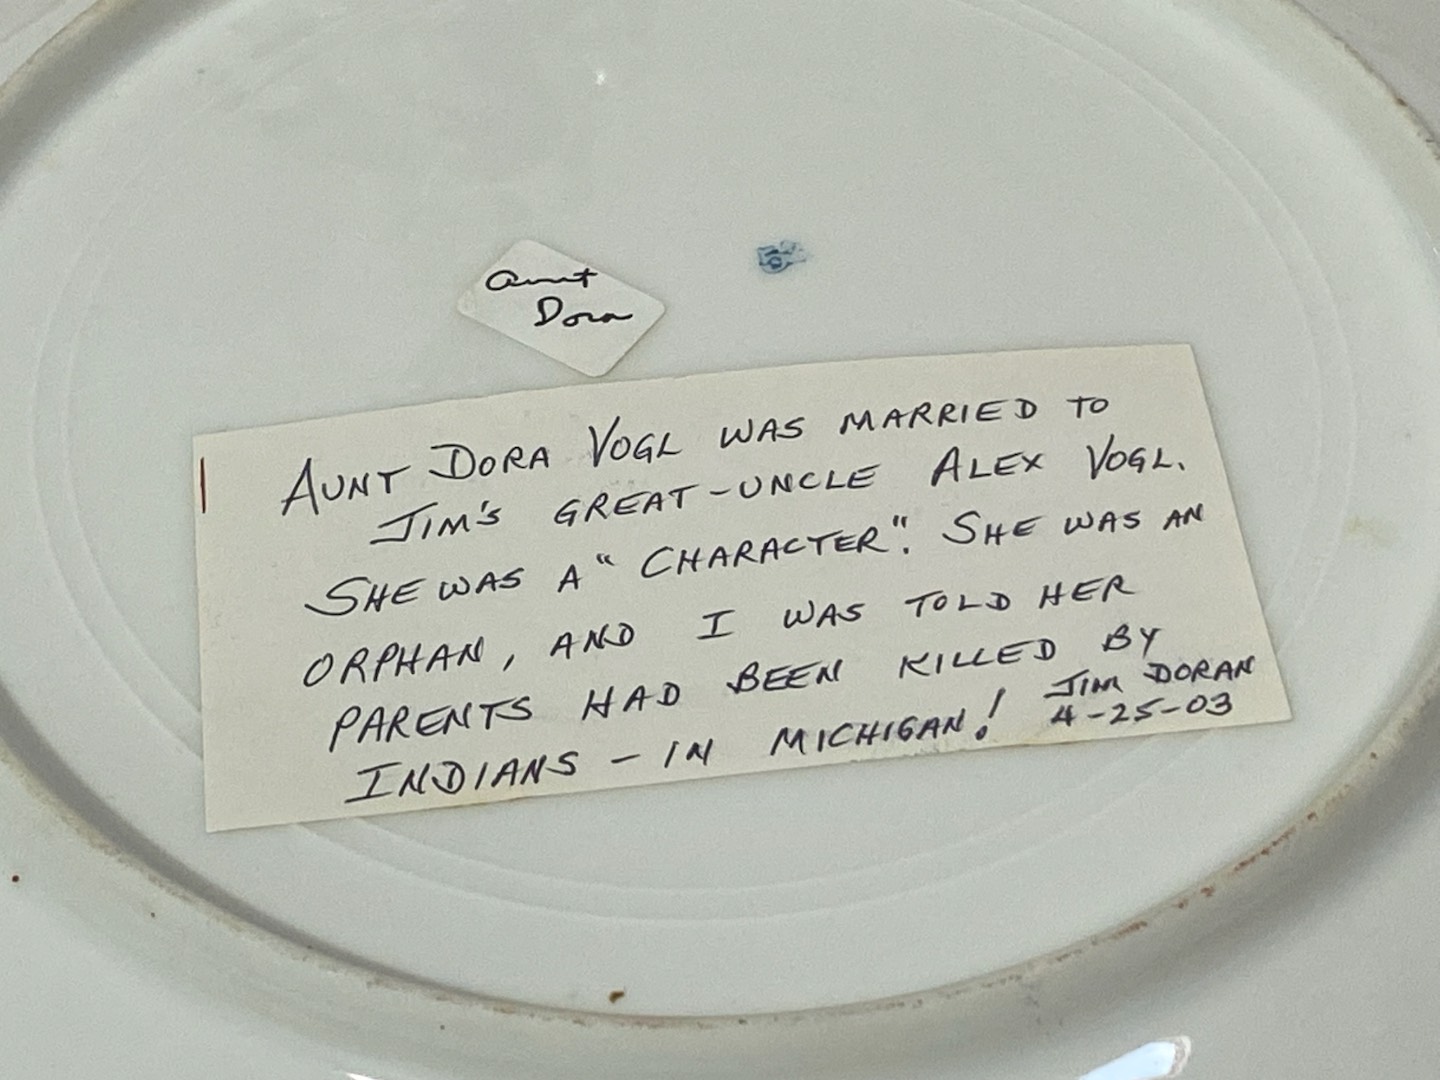 Aunt
Dora
AUNT DORA VOGL WAS MARRIED TO
JIM'S GREAT-UNCLE ALEX VOGL.
SHE WAS A "CHARACTER". SHE WAS AN
ORPHAN, AND I WAS TOLD HER
PARENTS HAD BEEN KILLED BY
INDIANS - IN MICHIGAN! JIM DORAN
4-25-03